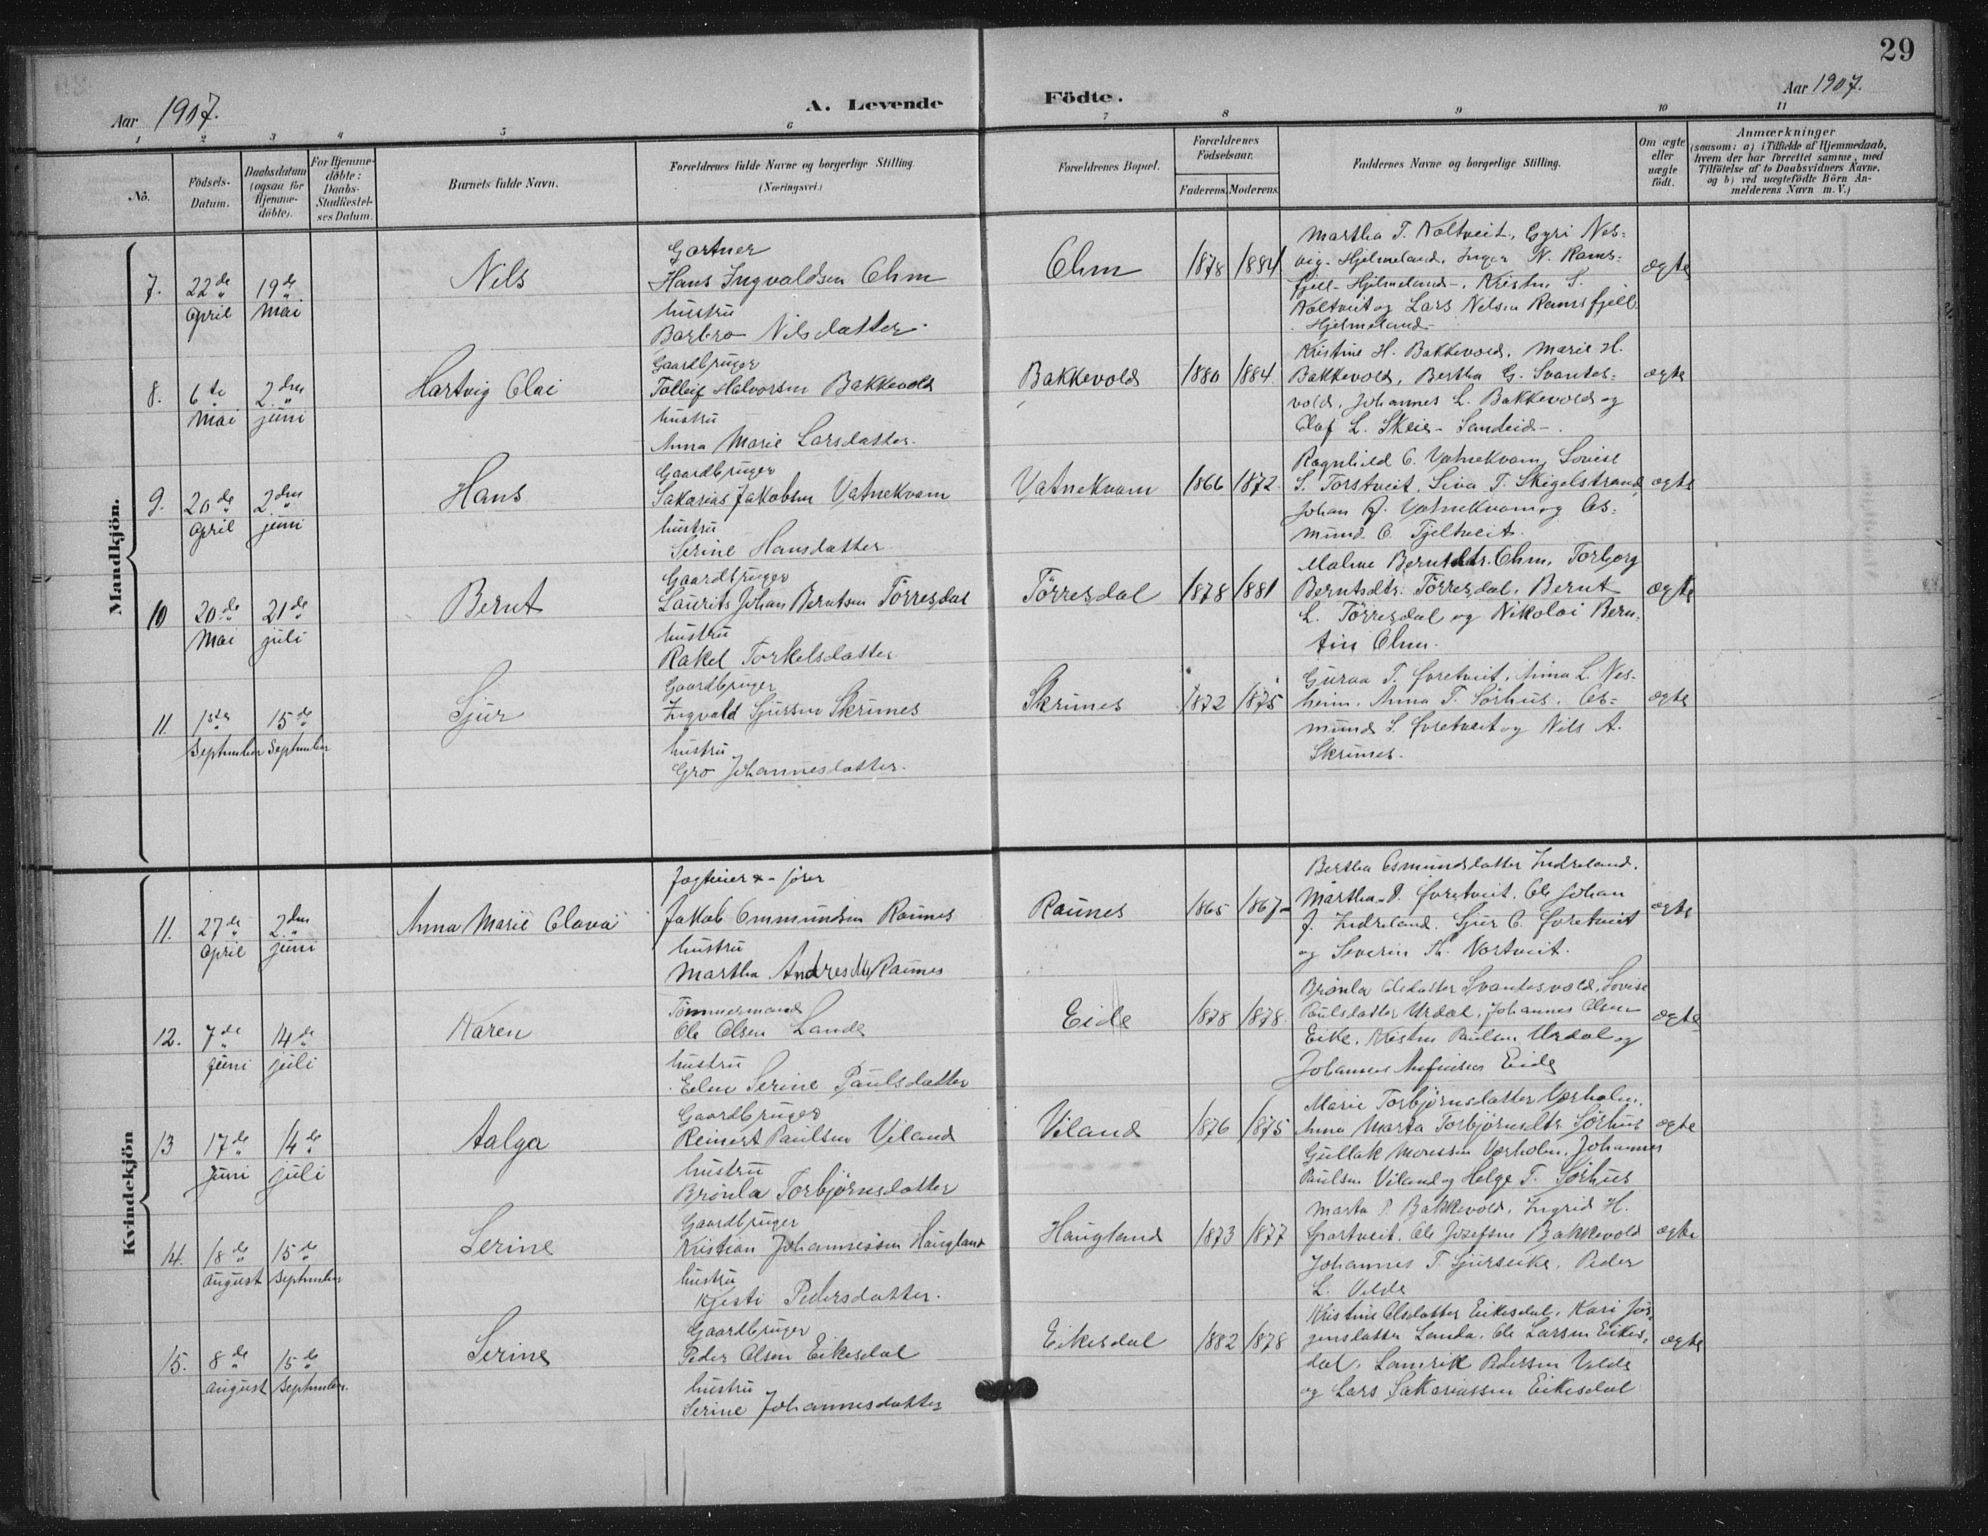 29
Aar 1907.
A. Levende Födte.
Aar 1907.
1 2 3 4 5 6 7 8 9 10 11
No.
Födsels-Datum.
Daabsdatum (ogsaa for Hjemme-döbte).
For Hjemme-döbte: Daabs-Stadfæstel-ses Datum.
Barnets fulde Navn.
Forældrenes fulde Navne og borgerlige Stilling.
(Næringsvei.)
Forældrenes Bopæl.
Forældrenes Födselsaar.
Faderens. Moderens.
Faddernes Navne og borgerlige Stilling.
Om ægte eller uægte födt.
Anmærkninger
(saasom: a) i Tilfælde af Hjemmedaab,
hvem der har forrettet samme, med
Tilföielse af to Daabsvidners Navne,
og b) ved uægtefödte Börn An-
melderens Navn m. V.)
Mandkjön.
7. 22de April 19de Mai
Nils
Gartner
Hans Ingvaldsen Ohm
hustru
Barbro Nilsdatter
Ohm
1878 1884
Martha T. Koltveit, Gyri Nes-
vig - Hjelmeland, Inger N. Rams-
fjell - Hjelmeland -, Kristen T.
Koltveit og Lars Nilsen Ramsfjell
Hjelmeland -
ægte
8. 6te Mai 2den juni
Hartvig Olai
Gaardbruger
Tolleif Halvorsen Bakkevold
hustru
Anna Marie Larsdatter.
Bakkevold
1880 1884
Kristine H. Bakkevold, Marie H.
Bakkevold, Bertha G. Svantes-
vold, Johannes L. Bakkevold og
Olaf L. Skeie - Sandeid -.
ægte
9. 20de April 2den juni
Hans
Gaardbruger
Sakarias Jakobsen Vatnekvam
hustru
Serine Hansdatter
Vatnekvam
1866 1872
Ragnhild O. Vatnekvam, Lovise
S. Torstveit, Siva T. Skigelstrand,
Johan J. Vatnekvam og Os-
mund O. Tjeltveit.
ægte
10 20de Mai 21de juli
Bernt
Gaardbruger
Laurits Johan Berntsen Törresdal
hustru
Rakel Torkelsdatter
Törresdal
1878 1881
Malene Berntsdtr. Ohm, Torborg
Berntsdtr. Törresdal, Bernt
L. Törresdal og Nikolai Bern-
tin Ohm.
ægte
11. 1ste September 15de September
Sjur
Gaardbruger
Ingvald Sjursen Skrunes
hustru
Gro Johannesdatter.
Skrunes
1872 1875
Guroa T. Övretveit, Anna L. Nes-
heim, Anna T. Sørhus, Os-
mund S. Övretveit og Nils A.
Skrunes.
ægte
Kvindekjön
11. 27de April 2den juni
Anna Marie Olava
Jagteier &
Jakob Ommundsen Raunes
hustru
Martha Andresdtr Raunes
Raunes
1865 1867
Bertha Osmundsdatter Indreland,
Martha P. Övretveit, Ole Johan
J. Indreland, Sjur O. Övretveit
og Severin Th. Nortveit.
ægte
12. 7de juni 14de juli
Karen
Tømmermand
Ole Olsen Landa
hustru
Elen Serine Paulsdatter
Eide
1878 1878.
Brønla Olsdatter Svantesvold, Lovise
Paulsdatter Urdal, Johannes Olsen
Eike, Kristen Paulsen Urdal og
Johannes Anfinsen Eide
ægte
13 17de juni 14de juli
Aalga
Gaardbruger
Reinert Paulsen Viland
hustru
Brønla Torbjørnsdatter
Viland
1876 1875
Marie Torbjørnsdatter Værholm,
Anna Marta Torbjørnsdtr. Sørhus
Gullak Monssen Værholm, Johannes
Paulsen Viland og Helge T. Sørhus
ægte
14. 18de august 15de September
Serine
Gaardbruger
Kristian Johannessen Haugland
hustru
Kjesti Pedersdatter.
Haugland
1873 1877
Marta P. Bakkevold, Ingrid H.
Ole Josefsen Bakkevold
Johannes T. Sjurseike, Peder
L. Velde
ægte
15. 8de august 15de September.
Serine
Gaardbruger
Peder Olsen Eikesdal
hustru
Serine Johannesdatter
Eikesdal
1882 1878
Kristine Olsdatter Eikesdal, Kari Jør-
gensdatter Landa, Ole Larsen Eikes-
dal, Lamrik Pederssen Velde
og Lars Sakariassen Eikesdal
ægte